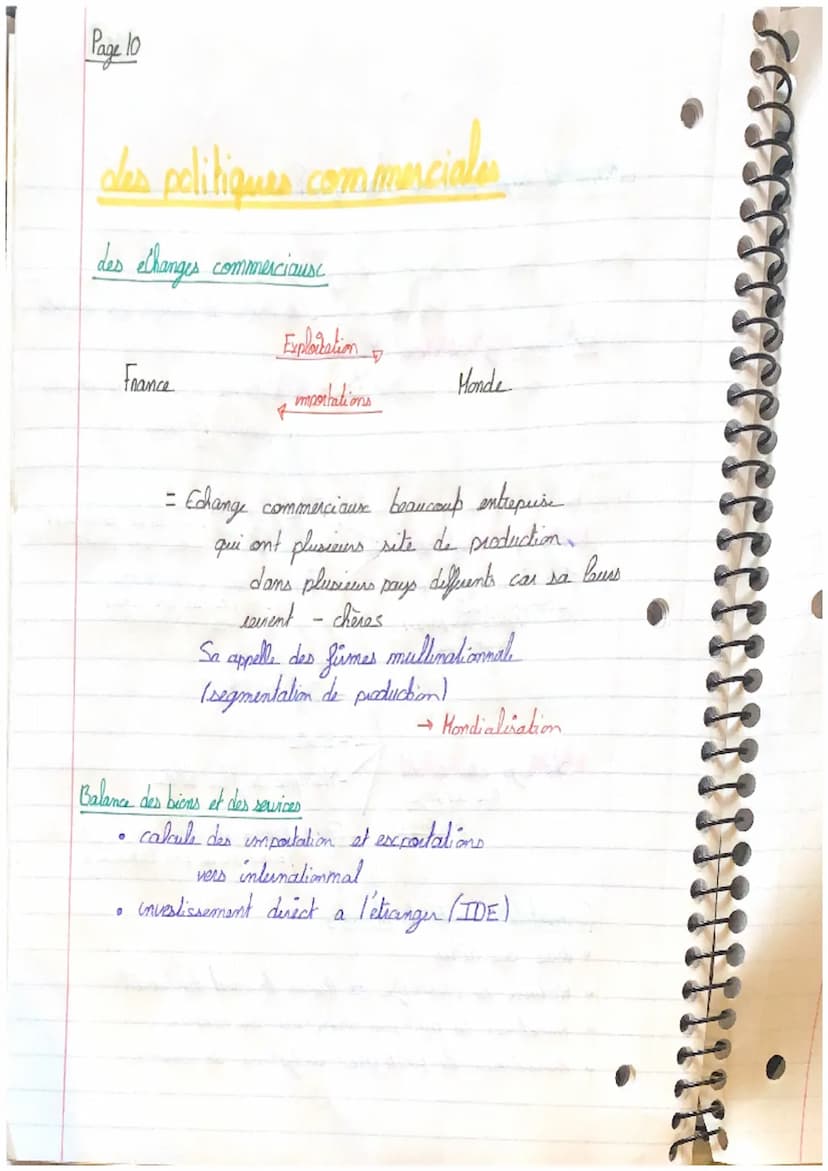 Page 10
des politiques commerciales
des echanges commerciausc
Exploitation
France
Monde
importations
= Echange commerciaux beaucoup entreprise
qui ont plusieurs site de production
dans plusieurs pays differents car sa leurs
revient - chères
Sa appelle des firmes multinationnale
(segmentation de production)
→ Mondialisation
Balance des biens et des services
• calcule des importation et exportations
vers internationnal
• investissement direct a l'étranger (IDE)